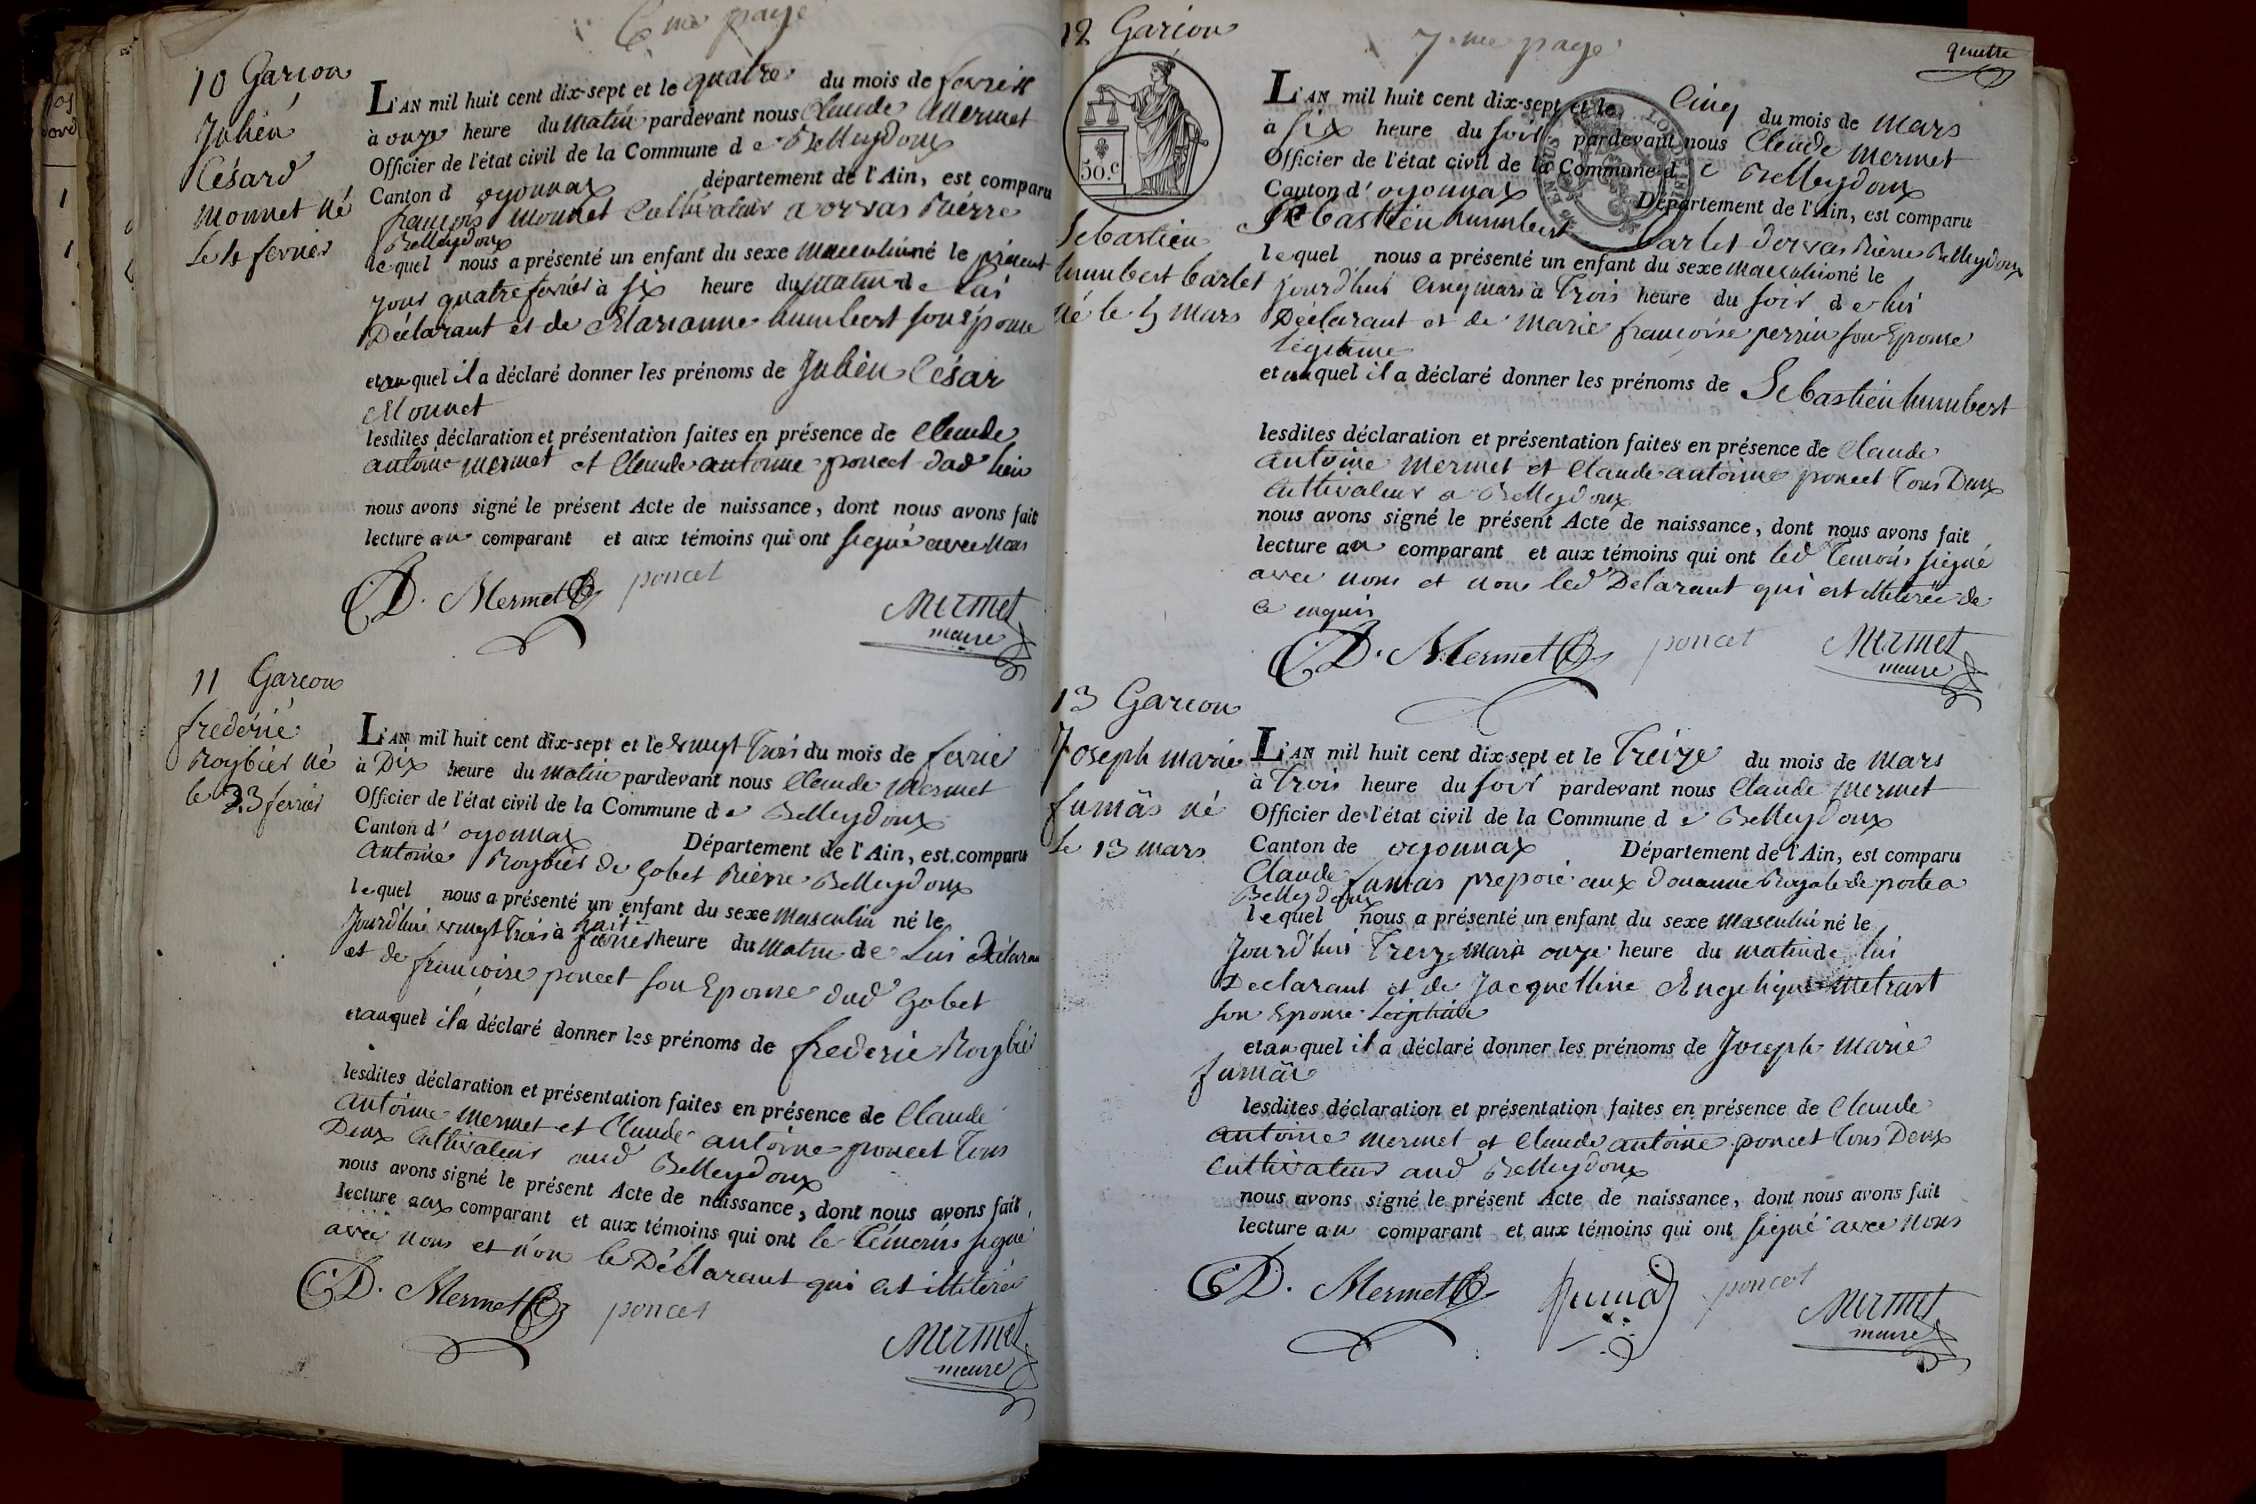 6me page
10 Garcon
Julien
César
monnet né
Le 4 fevrier
L'AN mil huit cent dix-sept et le quatre du mois de fevrier
à onze heure du matin pardevant nous Claude Mermet
Officier de l'état civil de la Commune de Belleydoux
Canton d oyonnax département de l'Ain, est comparu
françois monnet Cultivateur a orvas Rierre
Belleydoux
lequel nous a présenté un enfant du sexe masculin né le présent
jour quatre fevrier à six heure du matin de lui
Déclarant et de Marianne humbert son Epouse
et auquel il a déclaré donner les prénoms de Julien César
Monnet
lesdites déclaration et présentation faites en présence de Claude
antoine mermet et Claude antoine poncet dud lieu
nous avons signé le présent Acte de naissance, dont nous avons fait
lecture au comparant et aux témoins qui ont signé avec nous
CD. Mermet poncet
Mermet
maire
11 Garcon
frederic
Roybier né
le 23 fevrier
L'AN mil huit cent dix-sept et le vingt Trois du mois de fevrier
à Dix heure du matin pardevant nous Claude Mermet
Officier de l'état civil de la Commune de Belleydoux
Canton d' oyonnax Département de l'Ain, est comparu
antoine Roybier de Gobet Rierre Belleydoux
lequel nous a présenté un enfant du sexe masculin né le
Jourd'hui vingt Trois à huit
fevrier heure du matin de Lui Déclarant
et de françoise poncet son Epouse dud Gobet
et auquel il a déclaré donner les prénoms de frederic Roybier
lesdites déclaration et présentation faites en présence de Claude
antoine mermet et Claude antoine poncet Tous
Deux Cultivateur aud Belleydoux
nous avons signé le présent Acte de naissance, dont nous avons fait
lecture aux comparant et aux témoins qui ont le témoins signé
avec nous et non le Déclarant qui est illiteré
CD. Mermet poncet
Mermet
maire
7.me page
12 Garcon
50.c
Sebastien
humbert barlet
né le 5 mars
L'AN mil huit cent dix-sept et le Cinq du mois de mars
à six heure du soir pardevant nous Claude mermet
Officier de l'état civil de la Commune de Belleydoux
Canton d' oyonnax Département de l'Ain, est comparu
Sebastien humbert barlet dorvas Rierre Belleydoux
lequel nous a présenté un enfant du sexe masculin né le
jourd'hui Cinq mars à Trois heure du soir de lui
Déclarant et de marie françoise perrin son Epouse
légitime
et auquel il a déclaré donner les prénoms de Sebastien humbert
lesdites déclaration et présentation faites en présence de Claude
antoine mermet et Claude antoine poncet Tous Deux
Cultivateur a Belleydoux
nous avons signé le présent Acte de naissance, dont nous avons fait
lecture au comparant et aux témoins qui ont led Temoins signé
avec nous et non led Delarant qui est illiterée de
ce enquis
CD. Mermet poncet Mermet
maire
13 Garcon
Joseph marie
fumâs né
Le 13 mars
L'AN mil huit cent dix-sept et le Treize du mois de mars
à Trois heure du soir pardevant nous Claude mermet
Officier de l'état civil de la Commune de Belleydoux
Canton de oyonnax Département de l'Ain, est comparu
Claude fumas preposé aux douanne Royale de poste a
Belleydoux
lequel nous a présenté un enfant du sexe masculin né le
Jourd'hui Treize mars à onze heure du matin de lui
Declarant et de Jacquelline Angelique metrart
son Epouse Legitime
et au quel il a déclaré donner les prénoms de Joseph marie
fumâs
lesdites déclaration et présentation faites en présence de Claude
antoine mermet et Claude antoine poncet tous Deux
Cultivateur aud Belleydoux
nous avons signé le présent Acte de naissance, dont nous avons fait
lecture au comparant et aux témoins qui ont signé avec nous
CD. Mermet fumas poncet
Mermet
maire